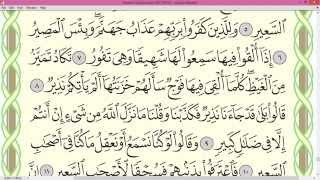 السَّعِيرِ ٥ وَلِلَّذِينَ كَفَرُوا بِرَبِّهِمْ عَذَابُ جَهَنَّمَ وَبِئْسَ الْمَصِيرُ
٦ إِذَا أُلْقُوا فِيهَا سَمِعُوا لَهَا شَهِيقًا وَهِيَ تَفُورُ ٧ تَكَادُ تَمَيَّزُ
مِنَ الْغَيْظِ كُلَّمَا أُلْقِيَ فِيهَا فَوْجٌ سَأَلَهُمْ خَزَنَتُهَا أَلَمْ يَأْتِكُمْ نَذِيرٌ ٨
قَالُوا بَلَىٰ قَدْ جَاءَنَا نَذِيرٌ فَكَذَّبْنَا وَقُلْنَا مَا نَزَّلَ اللَّهُ مِنْ شَيْءٍ إِنْ أَنْتُمْ
إِلَّا فِي ضَلَالٍ كَبِيرٍ ٩ وَقَالُوا لَوْ كُنَّا نَسْمَعُ أَوْ نَعْقِلُ مَا كُنَّا فِي أَصْحَابِ
السَّعِيرِ ١٠ فَاعْتَرَفُوا بِذَنْبِهِمْ فَسُحْقًا لِأَصْحَابِ السَّعِيرِ ١١ إِنَّ